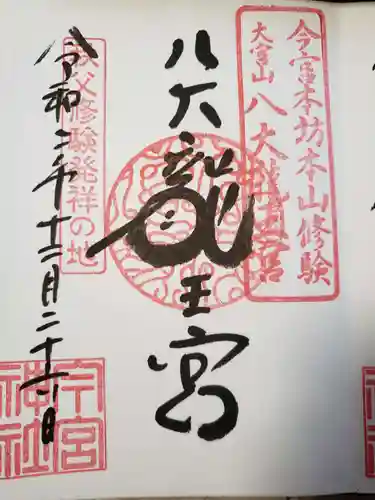 今宮本坊本山修験
大宮山 八大龍王宮
八大龍王宮
秩父修験発祥の地
令和二年十二月二十六日
今宮
神社